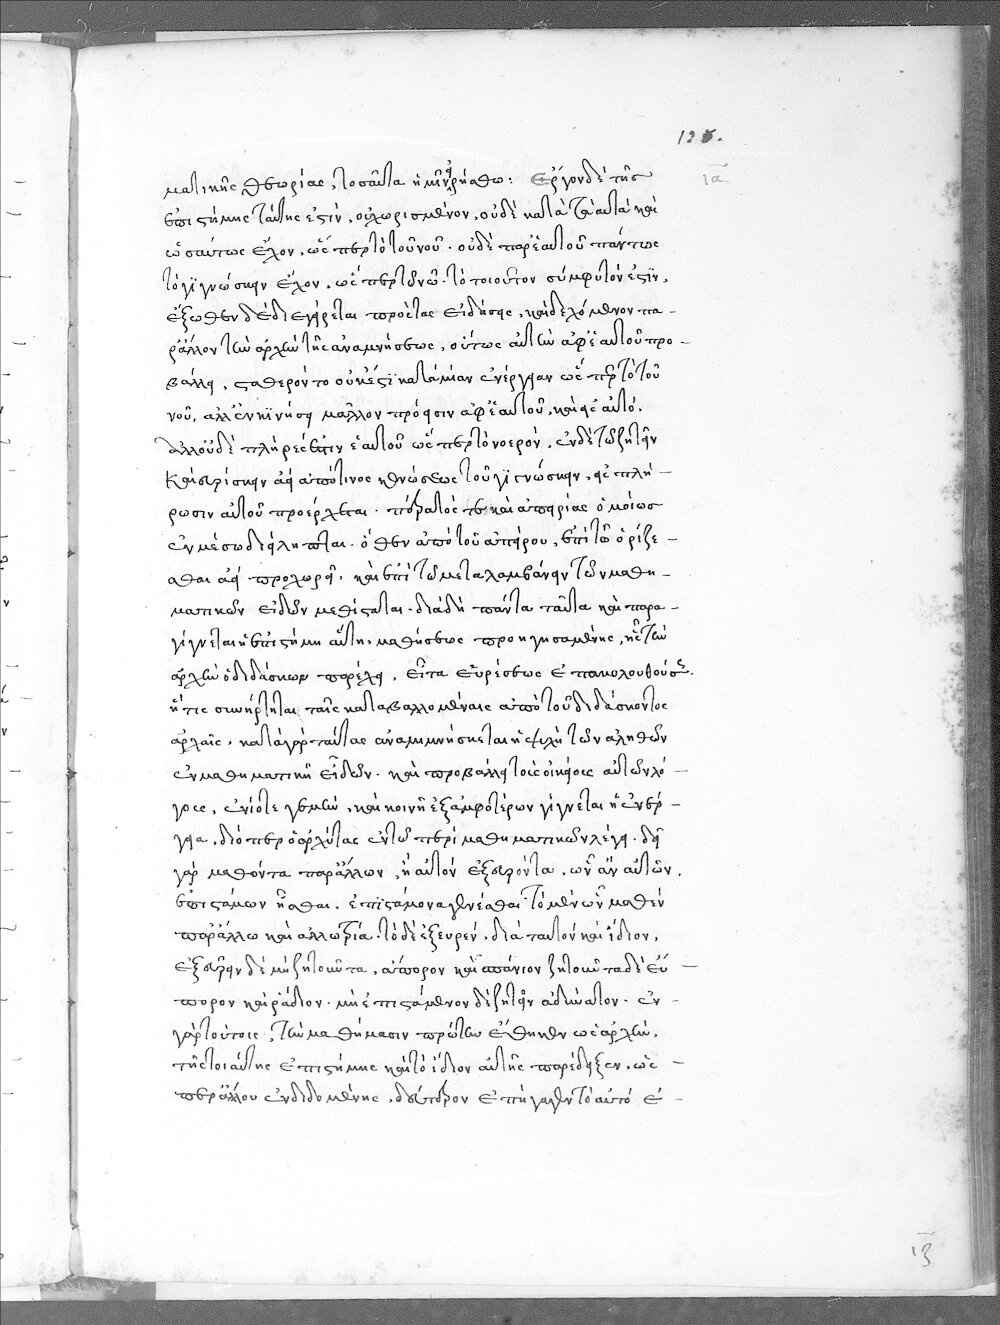 125.
ια
ματικῆς θεωρίας, τοσαῦτα ἡμῖν εἰρήσθω: Ἔργον δὲ τῆς
ἐπιστήμης ταύτης ἐστὶν, οὐ χωρισμένον, οὐδὲ κατὰ τὰ αὐτὰ καὶ
ὡσαύτως ἔχον, ὥσπερ τὸ τοῦ νοῦ. οὐδὲ παρ' ἑαυτοῦ πάντως
τὸ γιγνώσκειν ἔχον, ὥσπερ τῷ νῷ τὸ τοιοῦτον σύμφυτόν ἐστιν,
ἔξωθεν δὲ διεγείρεται πρὸς τὰς εἰδήσεις, καὶ δεχόμενον πα-
ρ' ἄλλον τὴν ἀρχὴν τῆς ἀναμνήσεως, οὕτως αὐτὴν ἀφ' ἑαυτοῦ προ-
βάλλει, σταθερόν τε οὐκ ἔστι κατὰ μίαν ἐνέργειαν ὥσπερ τὸ τοῦ
νοῦ, ἀλλ' ἐν κινήσει μᾶλλον πρόεισιν ἀφ' ἑαυτοῦ, καὶ εἰς αὐτό.
ἀλλ' οὐδὲ πλῆρές ἐστιν ἑαυτοῦ ὥσπερ τὸ νοερόν, ἐν δὲ τῷ ζητεῖν
καὶ εὑρίσκειν ἀεὶ ἀπό τινος κενώσεως τοῦ γιγνώσκειν, εἰς πλή-
ρωσιν αὐτοῦ προέρχεται. πέρατός τε καὶ ἀπειρίας ὁμοίως
ἐν μέσῳ διείληπται. ὅθεν ἀπὸ τοῦ ἀπείρου, ἐπὶ τὸ ὁρίζε-
σθαι ἀεὶ προχωρεῖ, καὶ ἐπὶ τὸ μεταλαμβάνειν τῶν μαθη-
ματικῶν εἰδῶν μεθίσταται. διὰ δὴ πάντα ταῦτα καὶ παρα-
γίγνεται ἡ ἐπιστήμη αὕτη, μαθήσεως προηγησαμένης, ἧς τὴν
ἀρχὴν ὁ διδάσκων παρέχει, εἶτα εὑρέσεως ἐπακολουθούσης.
ἥτις συνήρτηται ταῖς καταβαλλομέναις ἀπὸ τοῦ διδάσκοντος
ἀρχαῖς. κατὰ γὰρ ταύτας ἀναμιμνήσκεται ἡ ψυχὴ τῶν ἀληθῶν
ἐν μαθηματικῇ εἰδῶν. καὶ προβάλλει τοὺς οἰκείους αὐτῶν λό-
γους, ἐνίοτε γε μὴν, καὶ κοινὴ ἐξ ἀμφοτέρων γίγνεται ἡ ἐνέρ-
γεια, διόπερ ὁ ἀρχύτας ἐν τῷ περὶ μαθηματικῶν λέγει. δεῖ
γὰρ μαθόντα παρ' ἄλλων, ἢ αὐτὸν ἐξευρόντα, ὧν ἂν αὐτῶν,
ἐπιστάμων ἦσθαι. ἐπιστάμονα γενέσθαι τὸ μὲν ὦν μαθὲν
παρ' ἄλλω καὶ ἀλλοτρία. τὸ δὲ ἐξευρὲν, διὰ ταυτὸν καὶ ἴδιον,
ἐξευρεῖν δὲ μὴ ζητοῦντα, ἄπορον καὶ σπάνιον ζητοῦντα δὲ εὔ-
πορον καὶ ῥάδιον. μὴ ἐπιστάμενον δὲ ζητεῖν ἀδύνατον. ἐν
γὰρ τούτοις, τὴν μαθήμασιν πρώτην ἔθηκεν ὡς ἀρχὴν,
τῆς τοιαύτης ἐπιστήμης καὶ τὸ ἴδιον αὐτῆς παρέδειξεν, ὡς
περ ἄλλου ἐνδιδομένης, δεύτερον ἐπήγαγεν τὸ αὐτὸ ἐ-
ιζ